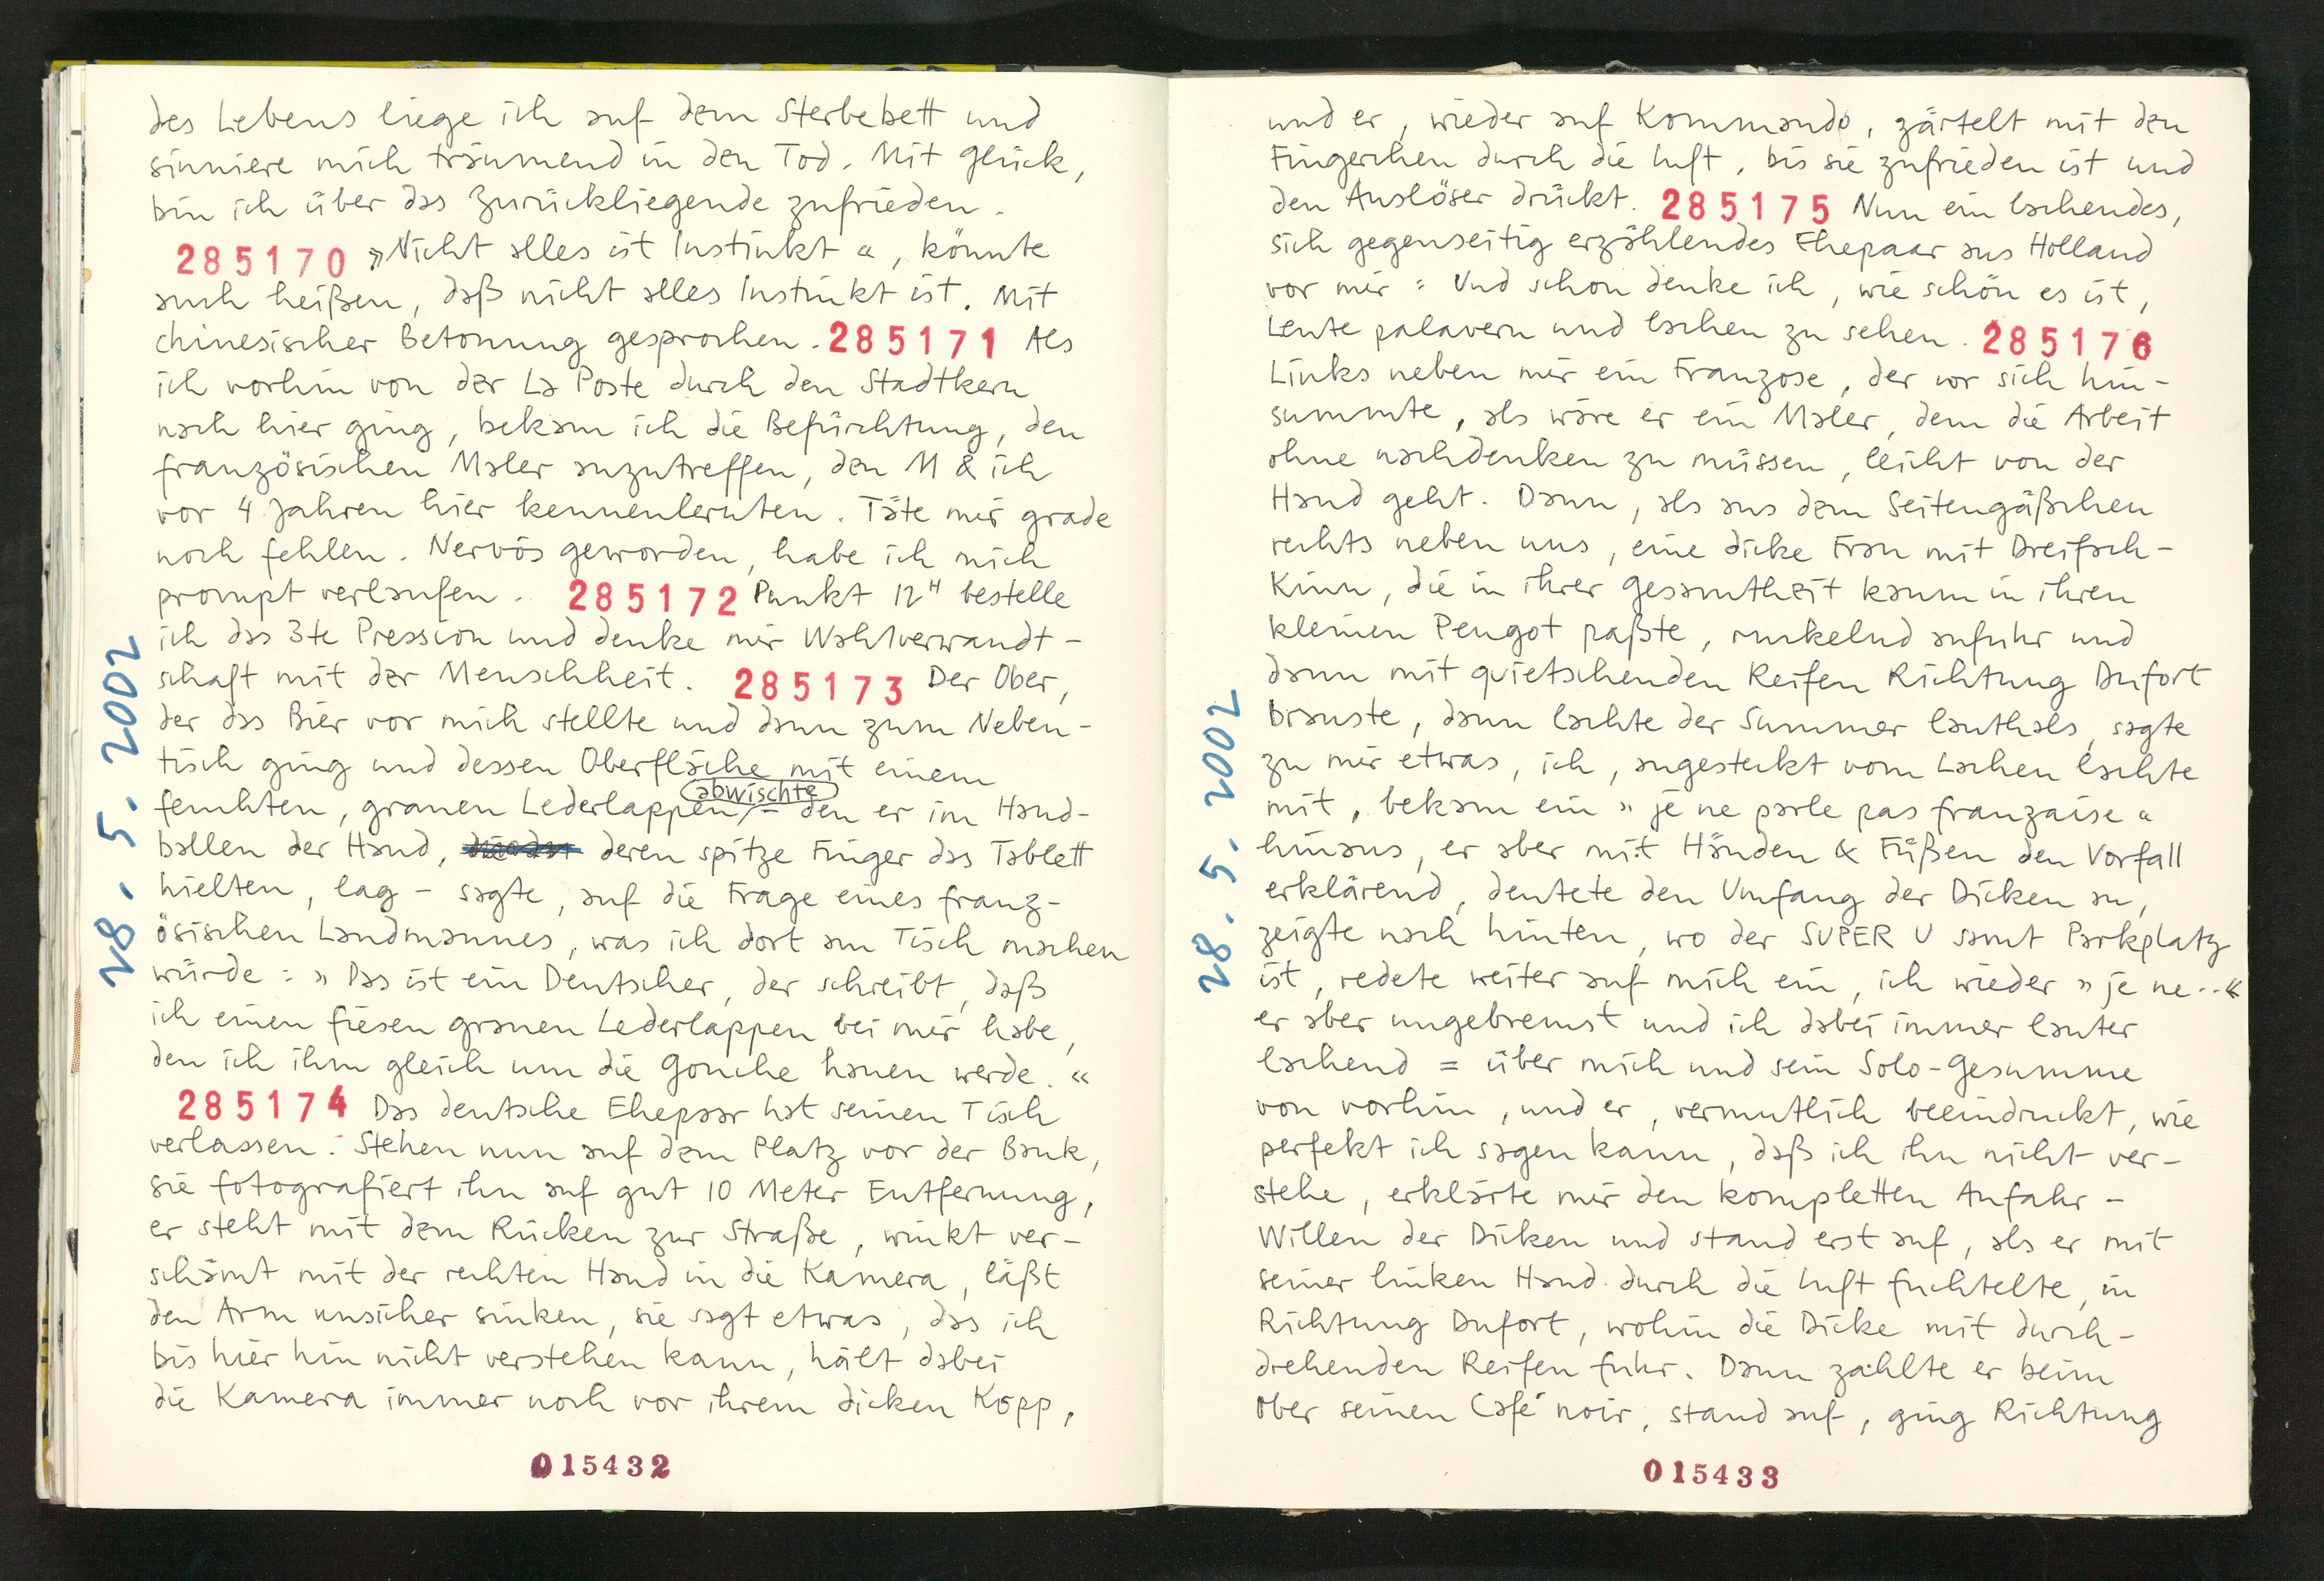 des Lebens liege ich auf dem Sterbebett und
sinniere mich träumend in den Tod. Mit Glück,
bin ich über das Zurückliegende zufrieden.
285170 »Nicht alles ist Instinkt«, könnte
auch heißen, daß nicht alles Instinkt ist. Mit
chinesischer Betonung gesprochen. 285171 Als
ich vorhin von der La Poste durch den Stadtkern
nach hier ging, bekam ich die Befürchtung, den
französischen Maler anzutreffen, den M & ich
vor 4 Jahren hier kennenlernten. Täte mir grade
noch fehlen. Nervös geworden, habe ich mich
prompt verlaufen. 285172 Punkt 12H bestelle
ich das 3te Pression und denke mir Wahlverwandt-
schaft mit der Menschheit. 285173 Der Ober,
der das Bier vor mich stellte und dann zum Neben-
tisch ging und dessen Oberfläche mit einem
feuchten, grauen Lederlappen abwischte – den er im Hand-
ballen der Hand, deren spitze Finger das Tablett
hielten, lag – sagte, auf die Frage eines franz-
ösischen Landmannes, was ich dort am Tisch machen
würde: »Das ist ein Deutscher, der schreibt, daß
ich einen fiesen grauen Lederlappen bei mir habe,
den ich ihm gleich um die Gouche hauen werde.«
285174 Das deutsche Ehepaar hat seinen Tisch
verlassen. Stehen nun auf dem Platz vor der Bank,
sie fotografiert ihn auf gut 10 Meter Entfernung,
er steht mit dem Rücken zur Straße, winkt ver-
schämt mit der rechten Hand in die Kamera, läßt
den Arm unsicher sinken, sie sagt etwas, das ich
bis hier hin nicht verstehen kann, hält dabei
die Kamera immer noch vor ihrem dicken Kopp,
28.5.2002
015432
und er, wieder auf Kommando, zärtelt mit den
Fingerchen durch die Luft, bis sie zufrieden ist und
den Auslöser drückt. 285175 Nun ein lachendes,
sich gegenseitig erzählendes Ehepaar aus Holland
vor mir: Und schon denke ich, wie schön es ist,
Leute palavern und lachen zu sehen. 285176
Links neben mir ein Franzose, der vor sich hin-
summte, als wäre er ein Maler, dem die Arbeit
ohne nachdenken zu müssen, leicht von der
Hand geht. Dann, als aus dem Seitengäßchen
rechts neben uns, eine dicke Frau mit Dreifach-
Kinn, die in ihrer Gesamtheit kaum in ihren
kleinen Peugot paßte, ruckelnd anfuhr und
dann mit quietschenden Reifen Richtung Dufort
brauste, dann lachte der Summer lauthals, sagte
zu mir etwas, ich, angesteckt vom Lachen lachte
mit, bekam ein »je ne parle pas franzaise«
hinaus, er aber mit Händen & Füßen den Vorfall
erklärend, deutete den Umfang der Dicken an,
zeigte nach hinten, wo der SUPER U samt Parkplatz
ist, redete weiter auf mich ein, ich wieder »je ne..«
er aber ungebremst und ich dabei immer lauter
lachend = über mich und sein Solo-Gesumme
von vorhin, und er, vermutlich beeindruckt, wie
perfekt ich sagen kann, daß ich ihn nicht ver-
stehe, erklärte mir den kompletten Anfahr-
Willen der Dicken und stand erst auf, als er mit
seiner linken Hand durch die Luft fuchtelte, in
Richtung Dufort, wohin die Dicke mit durch-
drehenden Reifen fuhr. Dann zahlte er beim
Ober seinen Café noir, stand auf, ging Richtung
28.5.2002
015433